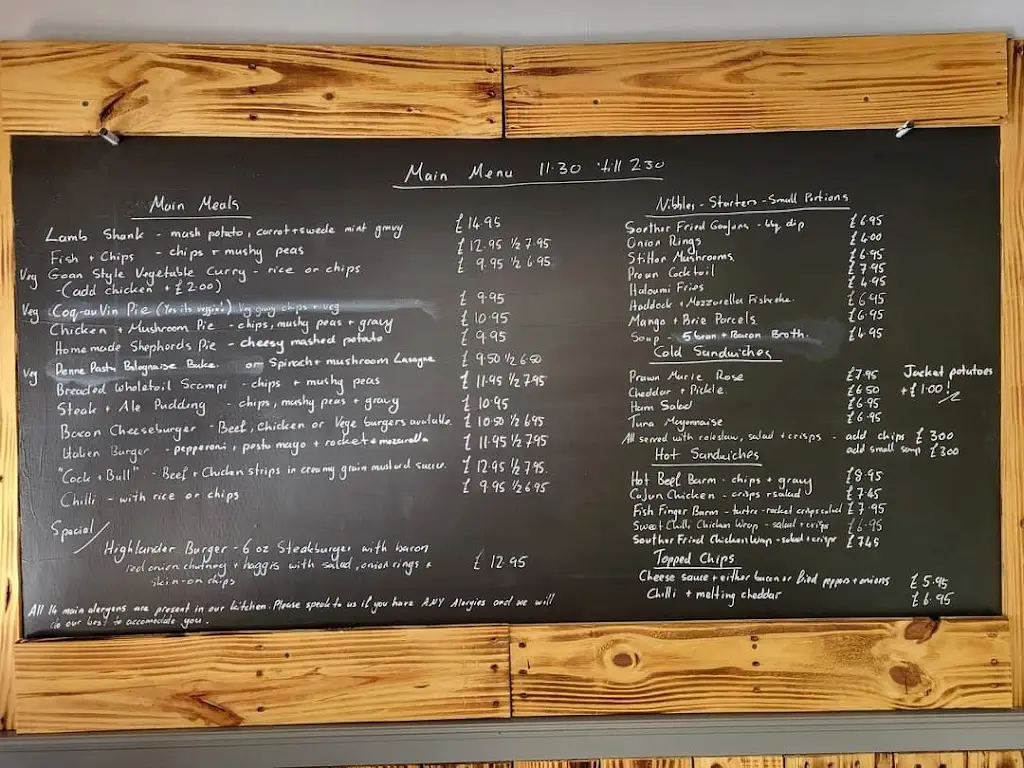 Main Menu 11.30 'till 2.30
Main Meals
Lamb Shank - mash potato, carrot + swede mint gravy £14.95
Fish + Chips - chips + mushy peas £12.95 ½ 7.95
Veg Goan Style Vegetable Curry - rice or chips £9.95 ½ 6.95
-(add chicken + £2.00)
Veg Coq-au Vin Pie (Yes its veggie!) Veg gravy chips + veg £9.95
Chicken + Mushroom Pie - chips, mushy peas + gravy £10.95
Homemade Shephords Pie - cheesy mashed potato £9.95
Veg Penne Pasta Bolognaise Bake. or Spinach + mushroom Lasagne £9.50 ½ 6.50
Breaded Wholetail Scampi - chips + mushy peas £11.95 ½ 7.95
Steak + Ale Pudding - chips, mushy peas + gravy £10.95
Bacon Cheeseburger - Beef, Chicken or Vege burgers available. £10.50 ½ 6.95
Italien Burger - pepperoni, pesto mayo + rocket + mozzarella £11.95 ½ 7.95
"Cock + Bull" - Beef + Chicken strips in creamy grain mustard sauce. £12.95 ½ 7.95.
Chilli - with rice or chips £9.95 ½ 6.95
Special
Highlander Burger - 6 oz Steakburger with bacon
red onion chutney + haggis with salad, onion rings + £12.95
skin-on chips
All 14 main alergens are present in our kitchen. Please speak to us if you have ANY Alergies and we will
do our best to accomodate you.
Nibbles - Starters - Small Portions
Souther Fried Goujons - dip £6.95
Onion Rings £4.00
Stilton Mushrooms £6.95
Prawn Cocktail £7.95
Haloumi Fries £4.95
Haddock + Mozzarella Fishcake. £6.95
Mango + Brie Parcels. £6.95
Soup - Bean + Bacon Broth. £4.95
Cold Sandwiches
Prawn Marie Rose £7.95
Cheddar + Pickle £6.50
Ham Salad £6.95
Tuna Mayonnaise £6.95
Jacket potatoes
+ £1.00!
All served with coleslaw, salad + crisps - add chips £3.00
add small soup £3.00
Hot Sandwiches
Hot Beef Barm - chips + gravy £8.95
Cajun Chicken - crisps + salad £7.45
Fish Finger Barm - tartre - rocket crisps salad £7.95
Sweet Chilli Chicken Wrap - salad + crisps £6.95
Souther Fried Chicken Wrap - salad + crisps £7.45
Topped Chips
Cheese sauce + either bacon or fried peppers + onions £5.95
Chilli + melting cheddar £6.95